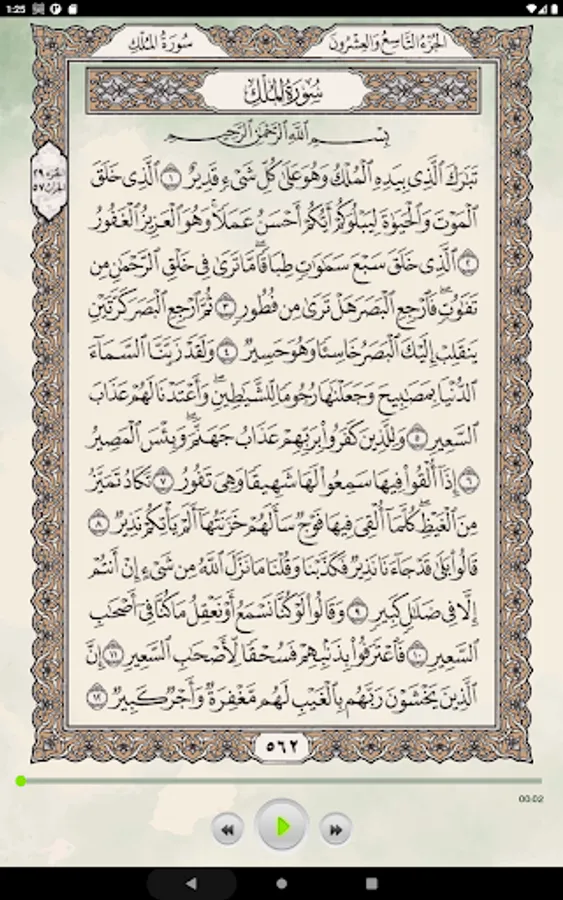 1:25
الجُزءُ التَّاسِعُ وَالعِشْرُونَ
سُورَةُ المُلْكِ
سُورَةُ المُلْكِ
بِسْمِ اللَّهِ الرَّحْمَٰنِ الرَّحِيمِ
تَبَارَكَ الَّذِي بِيَدِهِ الْمُلْكُ وَهُوَ عَلَىٰ كُلِّ شَيْءٍ قَدِيرٌ ١ الَّذِي خَلَقَ
الْمَوْتَ وَالْحَيَوٰةَ لِيَبْلُوَكُمْ أَيُّكُمْ أَحْسَنُ عَمَلًا ۚ وَهُوَ الْعَزِيزُ الْغَفُورُ
٢ الَّذِي خَلَقَ سَبْعَ سَمَٰوَٰتٍ طِبَاقًا ۖ مَّا تَرَىٰ فِي خَلْقِ الرَّحْمَٰنِ مِن
تَفَٰوُتٍ ۖ فَارْجِعِ الْبَصَرَ هَلْ تَرَىٰ مِن فُطُورٍ ٣ ثُمَّ ارْجِعِ الْبَصَرَ كَرَّتَيْنِ
يَنقَلِبْ إِلَيْكَ الْبَصَرُ خَاسِئًا وَهُوَ حَسِيرٌ ٤ وَلَقَدْ زَيَّنَّا السَّمَآءَ
الدُّنْيَا بِمَصَٰبِيحَ وَجَعَلْنَٰهَا رُجُومًا لِّلشَّيَٰطِينِ ۖ وَأَعْتَدْنَا لَهُمْ عَذَابَ
السَّعِيرِ ٥ وَلِلَّذِينَ كَفَرُوا۟ بِرَبِّهِمْ عَذَابُ جَهَنَّمَ ۖ وَبِئْسَ الْمَصِيرُ
٦ إِذَآ أُلْقُوا۟ فِيهَا سَمِعُوا۟ لَهَا شَهِيقًا وَهِيَ تَفُورُ ٧ تَكَادُ تَمَيَّزُ
مِنَ الْغَيْظِ ۖ كُلَّمَآ أُلْقِيَ فِيهَا فَوْجٌ سَأَلَهُمْ خَزَنَتُهَآ أَلَمْ يَأْتِكُمْ نَذِيرٌ ٨
قَالُوا۟ بَلَىٰ قَدْ جَآءَنَا نَذِيرٌ فَكَذَّبْنَا وَقُلْنَا مَا نَزَّلَ اللَّهُ مِن شَيْءٍ إِنْ أَنتُمْ
إِلَّا فِي ضَلَٰلٍ كَبِيرٍ ٩ وَقَالُوا۟ لَوْ كُنَّا نَسْمَعُ أَوْ نَعْقِلُ مَا كُنَّا فِيٓ أَصْحَٰبِ
السَّعِيرِ ١٠ فَاعْتَرَفُوا۟ بِذَنۢبِهِمْ فَسُحْقًا لِّأَصْحَٰبِ السَّعِيرِ ١١ إِنَّ
الَّذِينَ يَخْشَوْنَ رَبَّهُم بِالْغَيْبِ لَهُم مَّغْفِرَةٌ وَأَجْرٌ كَبِيرٌ ١٢
الجزء ٢٩
الحزب ٥٧
٥٦٢
00:02